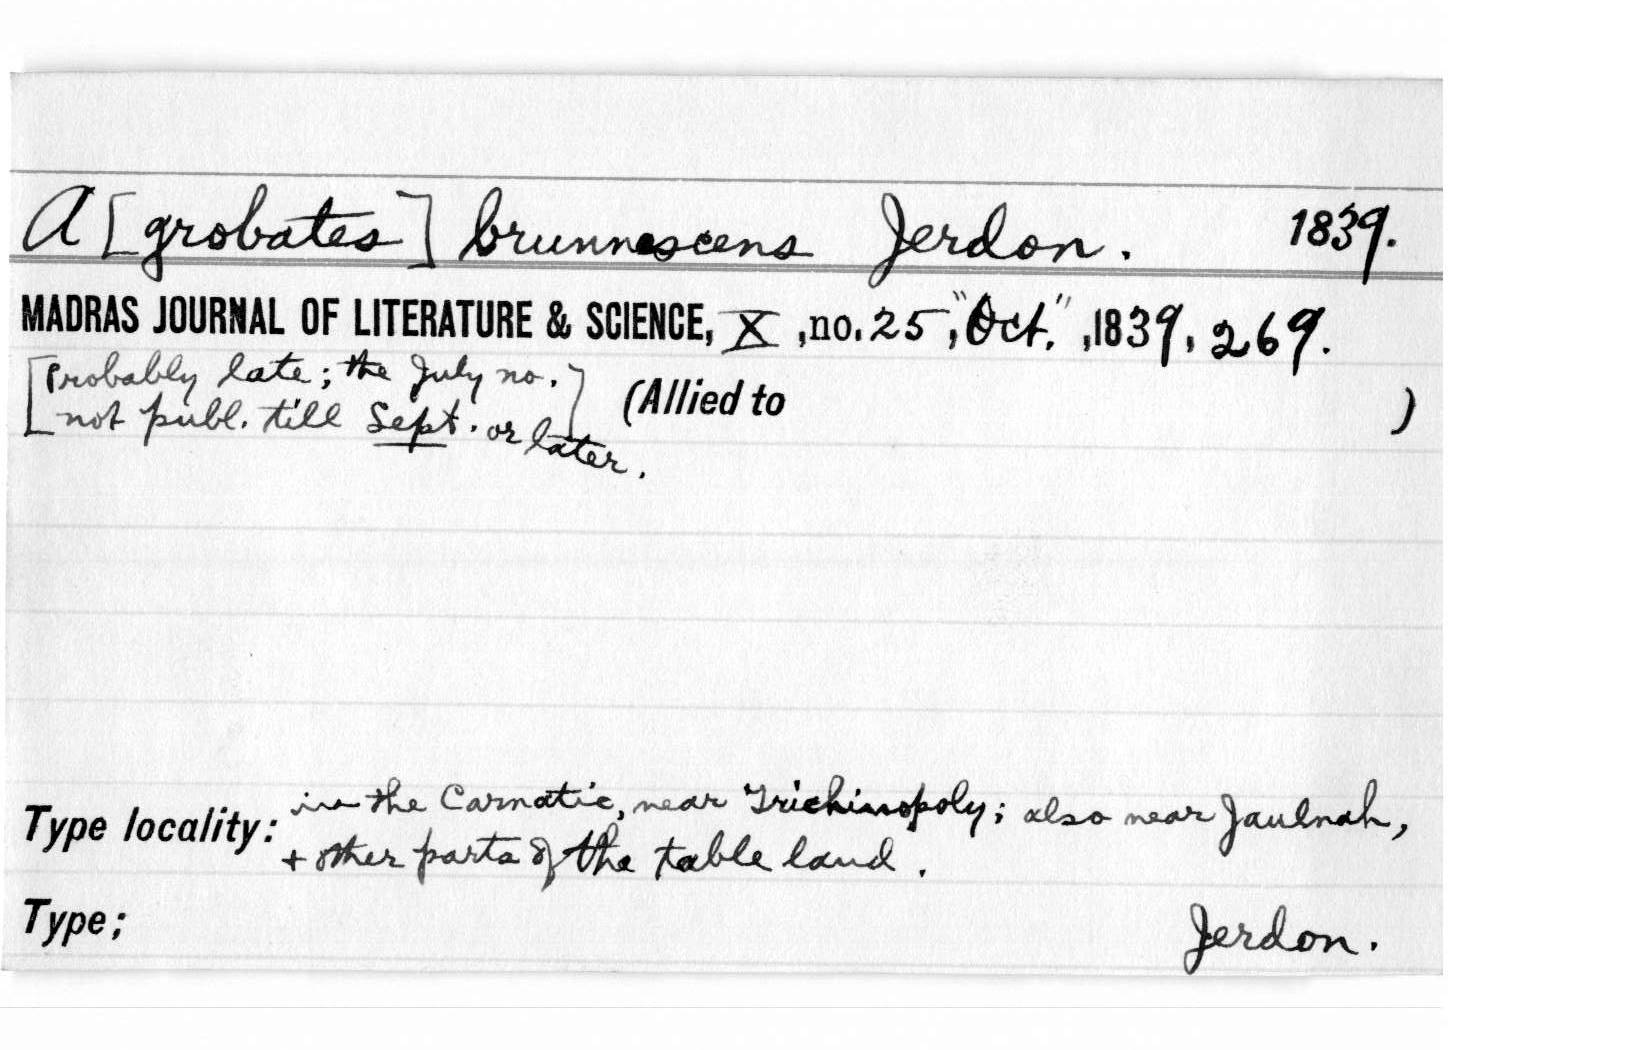 A[grobates] brunnescens Jerdon. 1839.
MADRAS JOURNAL OF LITERATURE & SCIENCE, X, no. 25, "Oct.", 1839, 269.
[Probably late; the July no.
not publ. till Sept. or later.] (Allied to )
Type locality: in the Carnatic, near Trichinopoly; also near Jaulnah,
+ other parts of the table land.
Type; Jerdon.